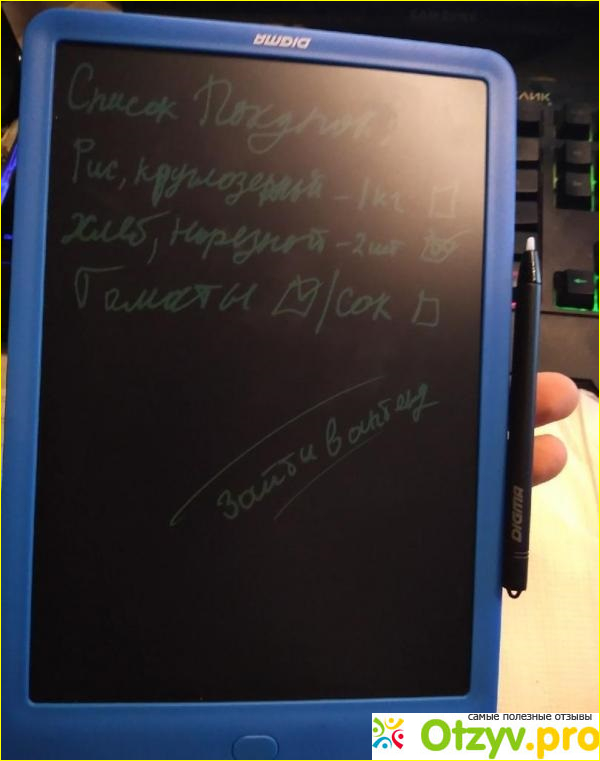 DIGMA
Список Покупок:
Рис, круглозерный - 1 кг
Хлеб, нарезной - 2 шт
Томаты /сок
Зайти в аптеку
DIGMA
самые полезные отзывы
Otzyv.pro